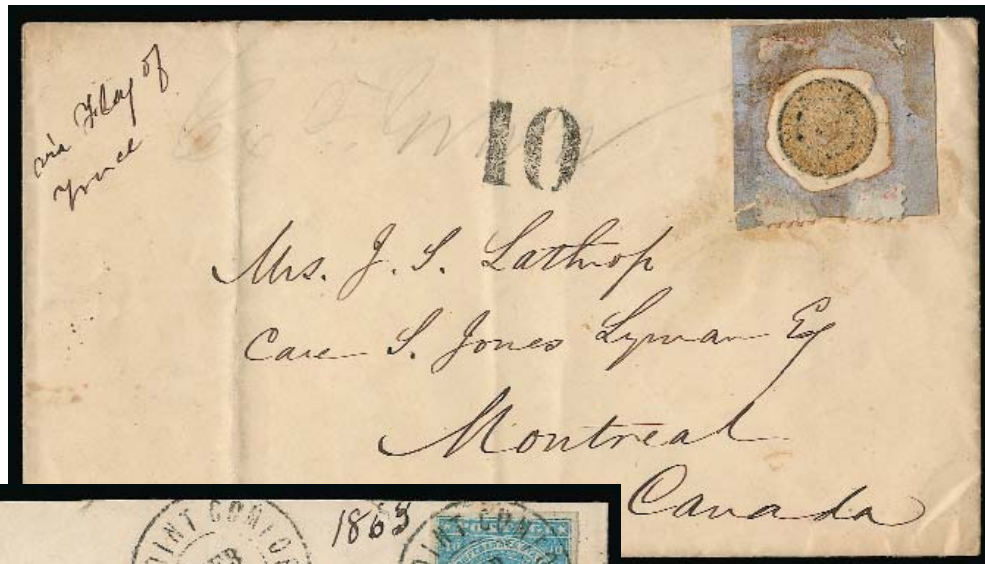 via Flag of
Truce
10
Mrs. J. S. Lathrop
Care S. Jones Lyman Esq
Montreal
Canada
1863
POINT COMFO
POINT COMFO
10 10